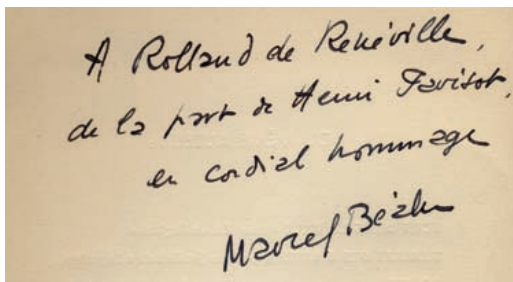 A Rolland de Renéville,
de la part de Henri Parisot,
en cordial hommage
Marcel Béalu